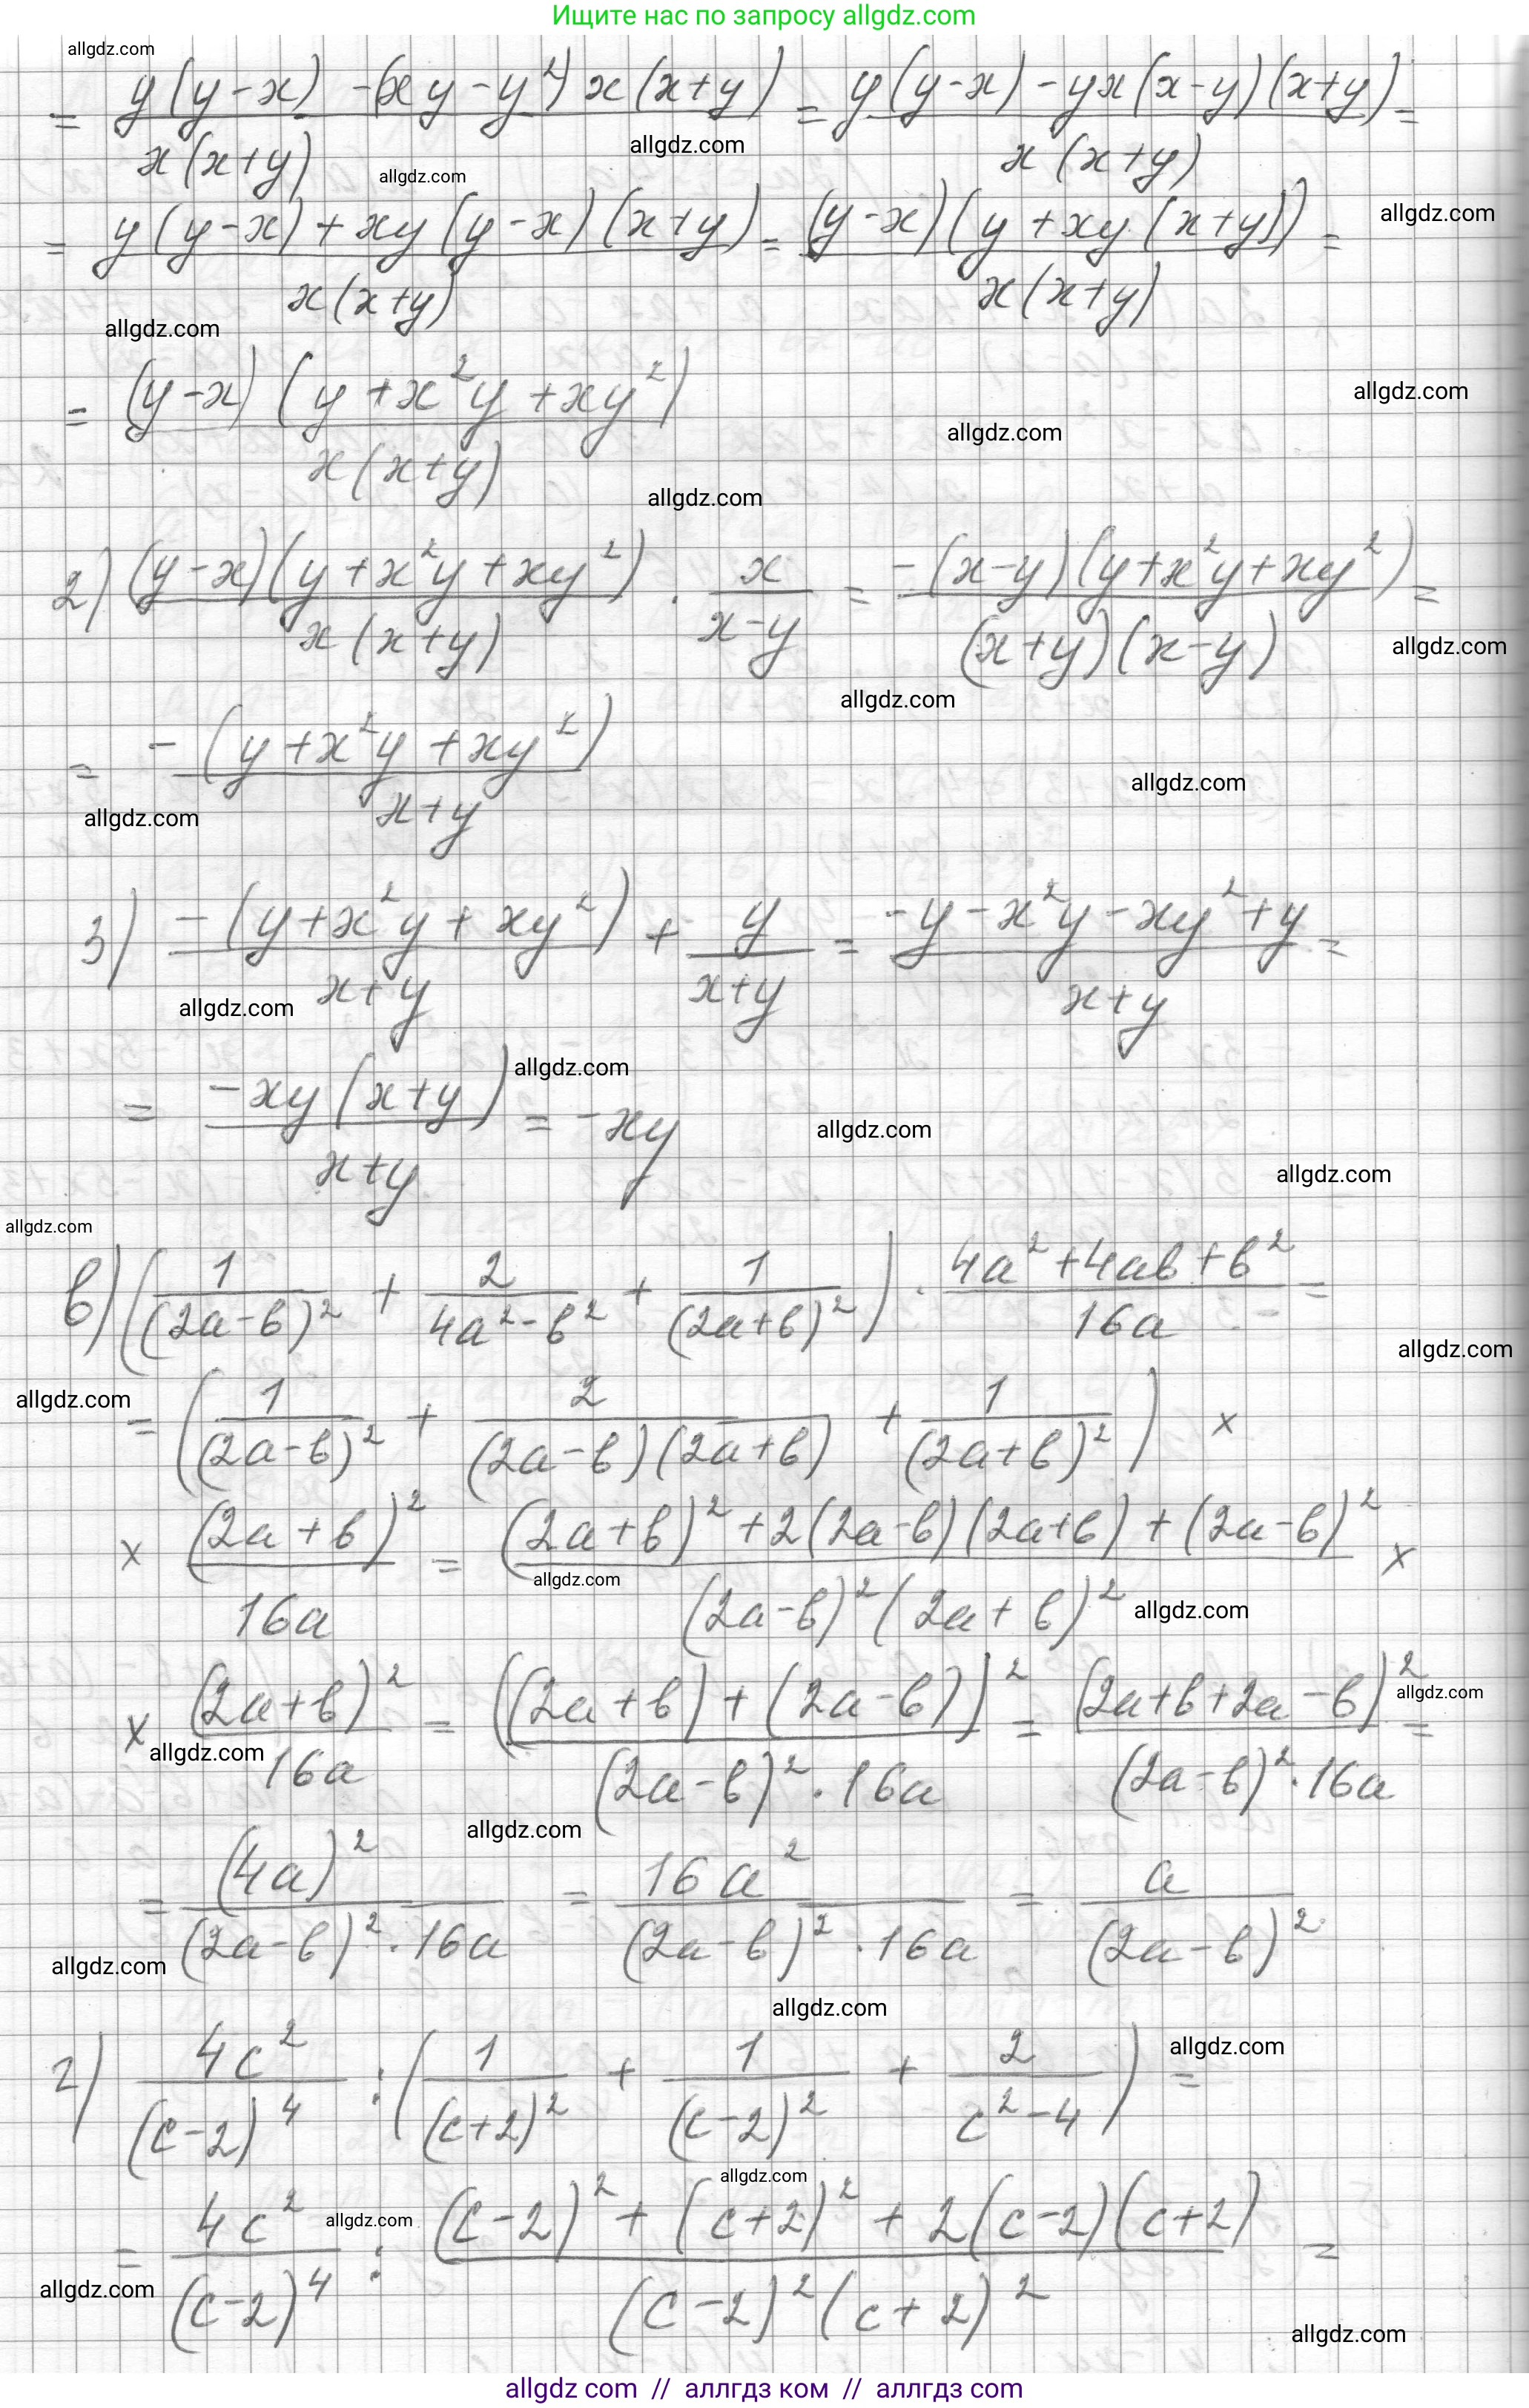 Ищите нас по запросу allgdz.com
allgdz.com
= (y(y-x) -(xy-y²)x(x+y))/(x(x+y)) = (y(y-x)-yx(x-y)(x+y))/(x(x+y)) =
allgdz.com
allgdz.com
= (y(y-x)+xy(y-x)(x+y))/(x(x+y)) = ((y-x)(y+xy(x+y)))/(x(x+y)) =
allgdz.com
allgdz.com
= ((y-x)(y+x²y+xy²))/(x(x+y))
allgdz.com
allgdz.com
allgdz.com
2) ((y-x)(y+x²y+xy²))/(x(x+y)) · x/(x-y) = (-(x-y)(y+x²y+xy²))/((x+y)(x-y)) =
allgdz.com
allgdz.com
= (-(y+x²y+xy²))/(x+y)
allgdz.com
allgdz.com
3) (-(y+x²y+xy²))/(x+y) + y/(x+y) = (-y-x²y-xy²+y)/(x+y) =
allgdz.com
allgdz.com
= (-xy(x+y))/(x+y) = -xy
allgdz.com
allgdz.com
allgdz.com
в) (1/(2a-b)² + 2/(4a²-b²) + 1/(2a+b)²) · (4a²+4ab+b²)/(16a) =
allgdz.com
allgdz.com
= (1/(2a-b)² + 2/((2a-b)(2a+b)) + 1/(2a+b)²) ×
× (2a+b)²/(16a) = ((2a+b)²+2(2a-b)(2a+b)+(2a-b)²)/((2a-b)²(2a+b)²) ×
allgdz.com
allgdz.com
× (2a+b)²/(16a) = ((2a+b)+(2a-b))²/((2a-b)²·16a) = (2a+b+2a-b)²/((2a-b)²·16a) =
allgdz.com
allgdz.com
allgdz.com
= (4a)²/((2a-b)²·16a) = 16a²/((2a-b)²·16a) = a/(2a-b)²
allgdz.com
allgdz.com
allgdz.com
г) 4c²/(c-2)⁴ : (1/(c+2)² + 1/(c-2)² + 2/(c²-4)) =
allgdz.com
allgdz.com
= 4c²/(c-2)⁴ : ((c-2)²+(c+2)²+2(c-2)(c+2))/((c-2)²(c+2)²) =
allgdz.com
allgdz.com
allgdz com // аллгдз ком // аллгдз com